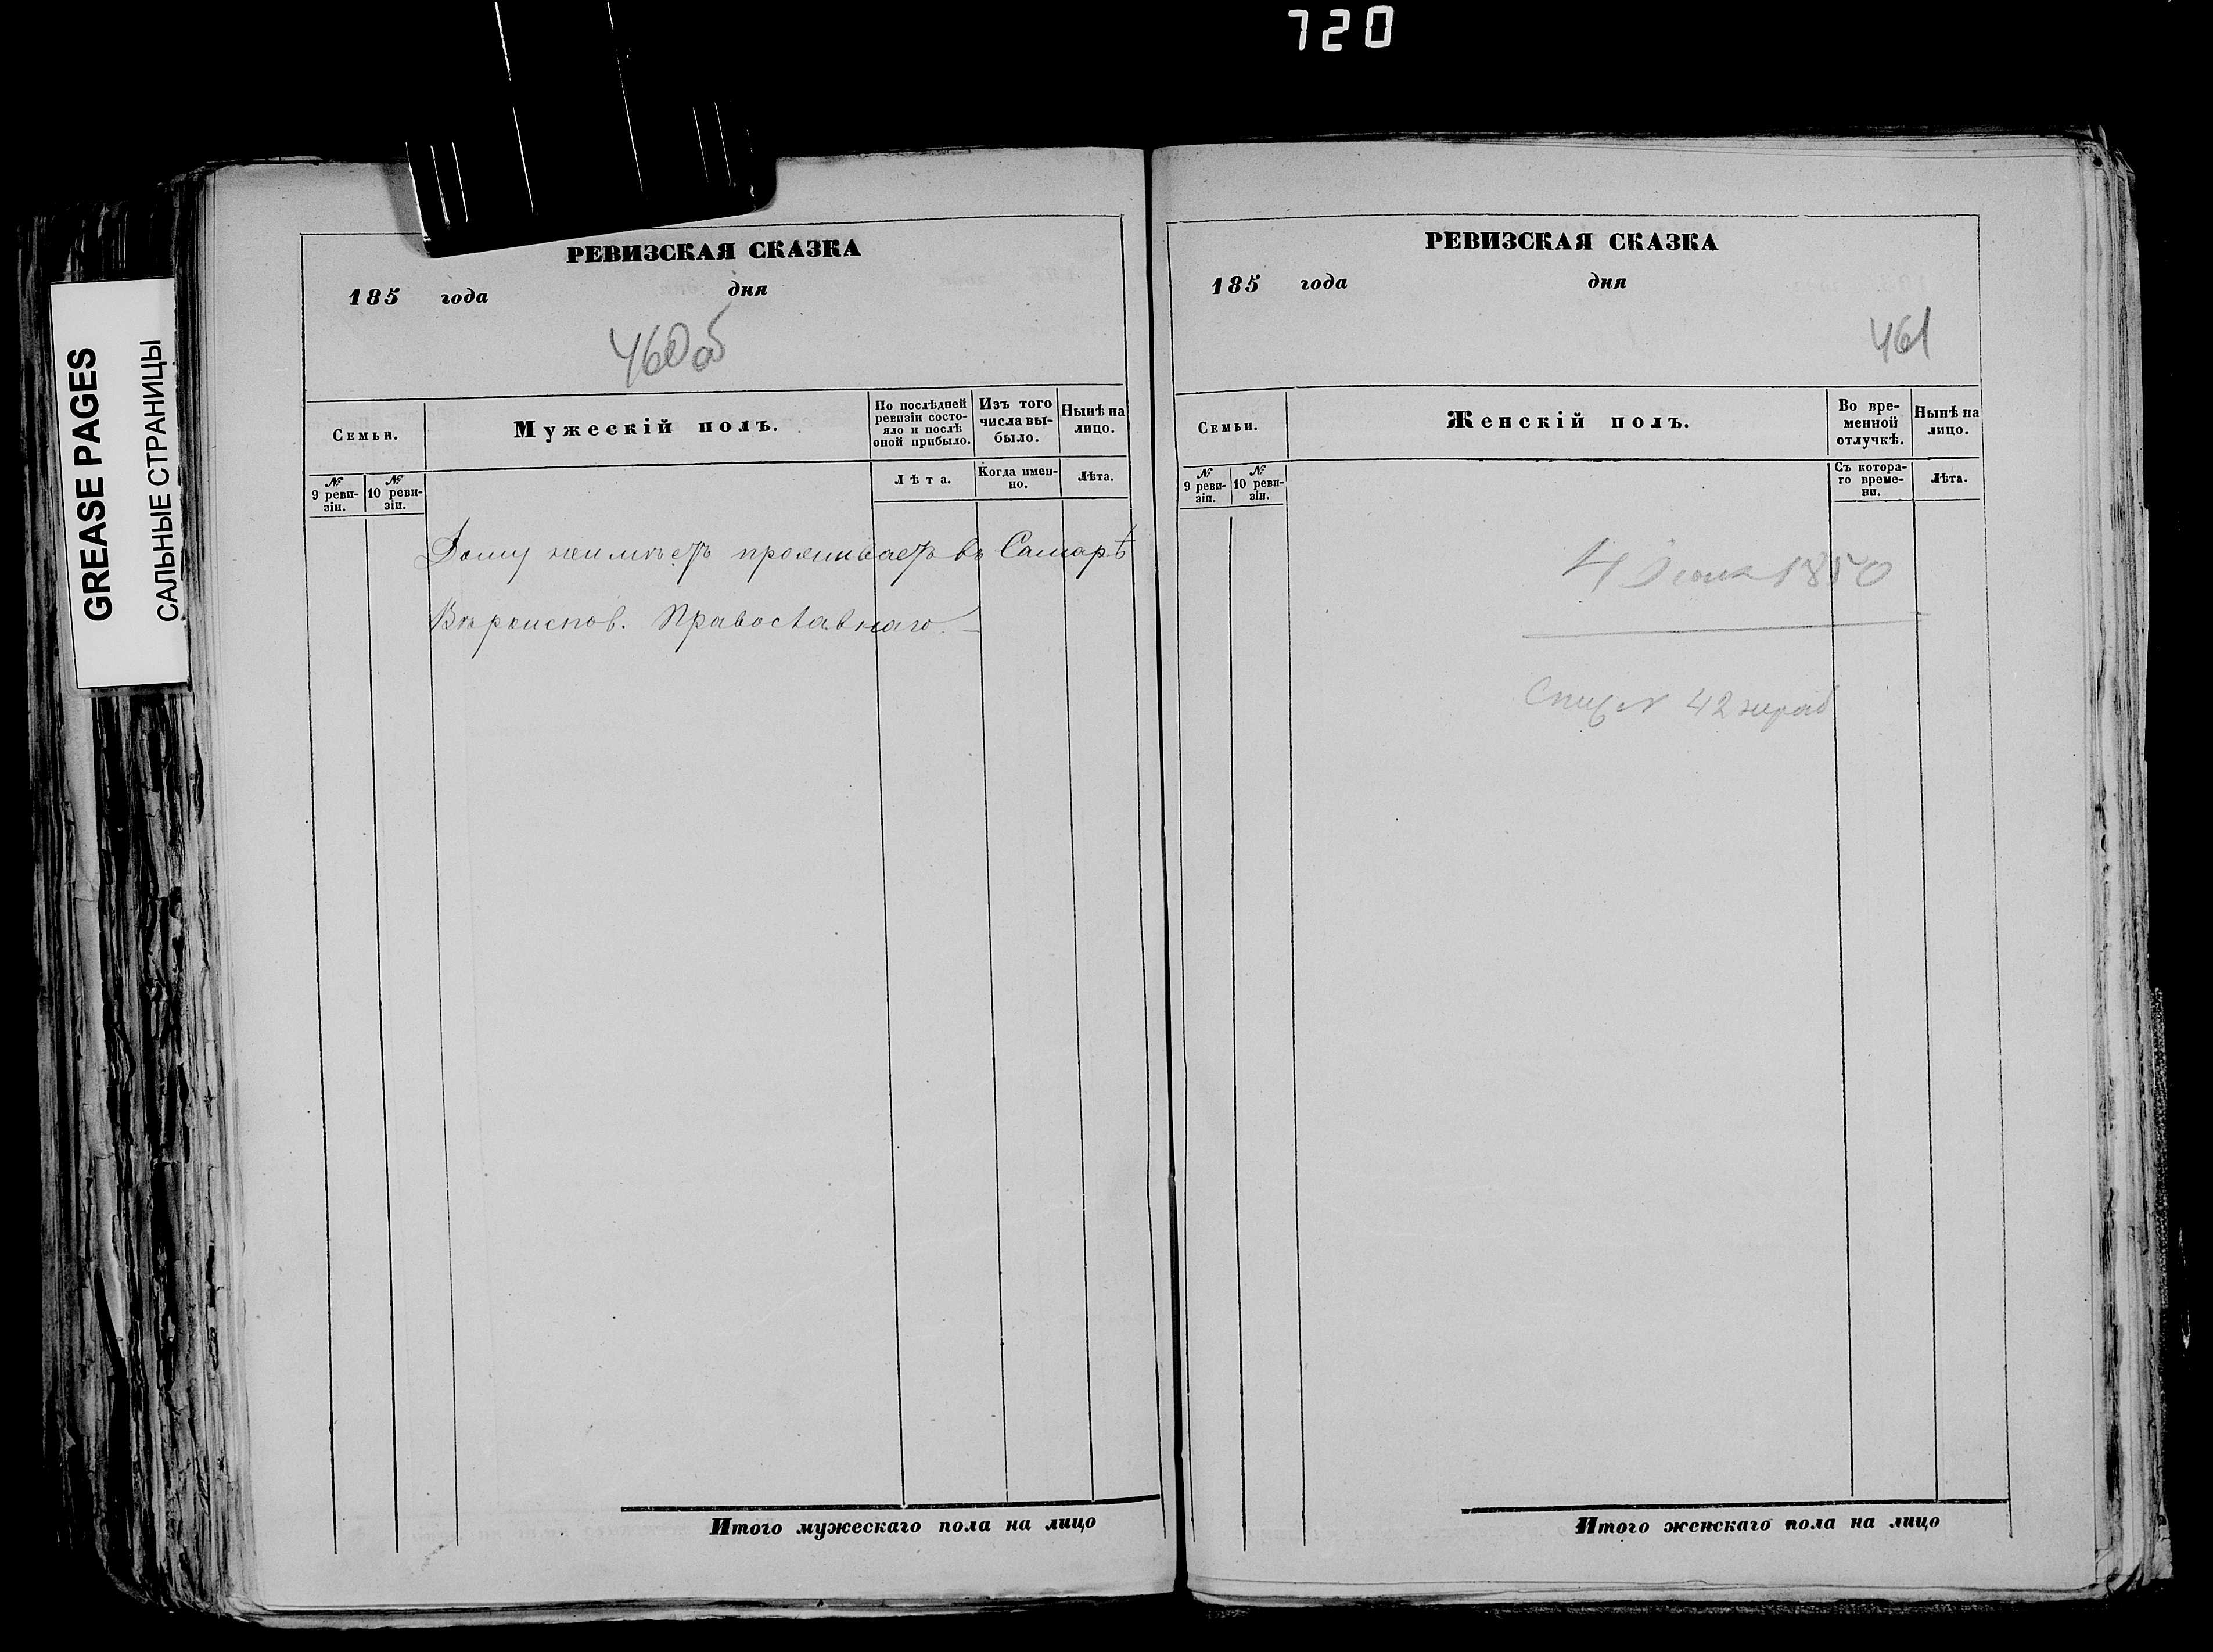 720
GREASE PAGES
САЛЬНЫЕ СТРАНИЦЫ
РЕВИЗСКАЯ СКАЗКА
185 года дня
460 об
Семьи.
Мужескій полъ.
По послѣдней ревизіи состояло и послѣ оной прибыло.
Изъ того числа выбыло.
Нынѣ на лицо.
№ 9 ревизіи.
№ 10 ревизіи.
Лѣта.
Когда именно.
Лѣта.
Дому неимѣетъ проживаетъ въ Самарѣ
Вѣроиспов. Православнаго
Итого мужескаго пола на лицо
РЕВИЗСКАЯ СКАЗКА
185 года дня
461
Семьи.
Женскій полъ.
Во временной отлучкѣ.
Нынѣ на лицо.
№ 9 ревизіи.
№ 10 ревизіи.
Съ котораго времени.
Лѣта.
4 1850
42
Итого женскаго пола на лицо